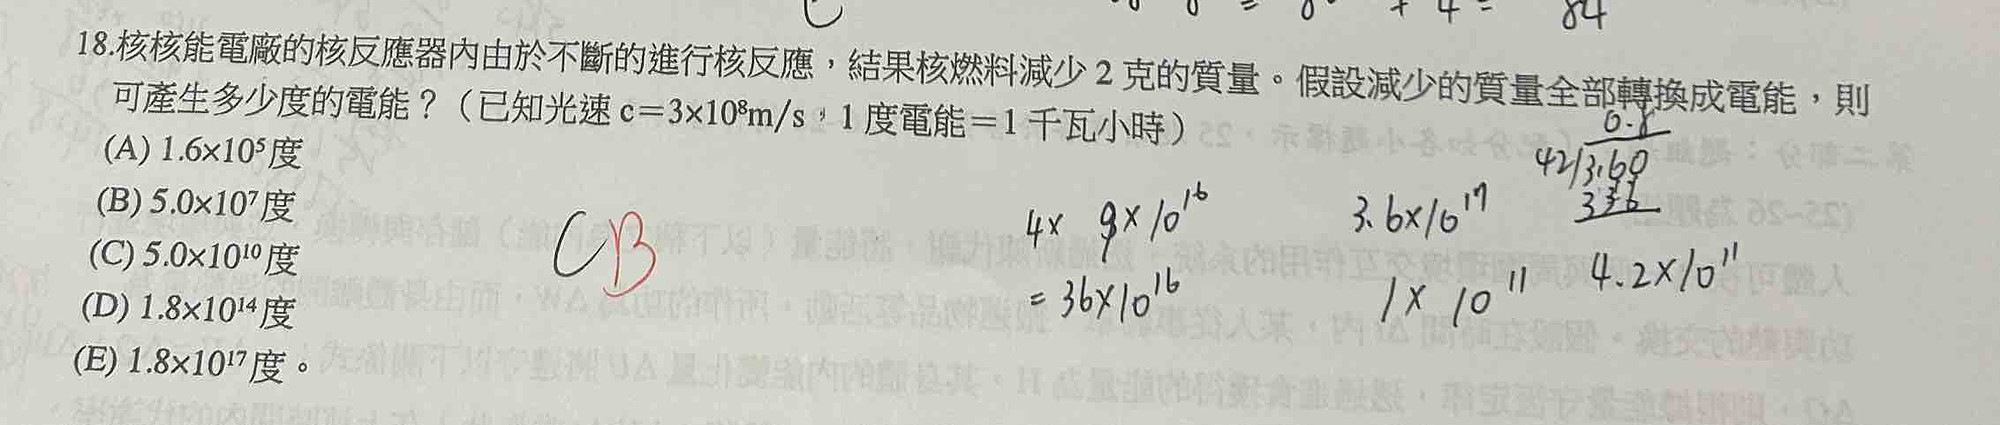 + 4 = 84
18.核核能電廠的核反應器內由於不斷的進行核反應，結果核燃料減少 2 克的質量。假設減少的質量全部轉換成電能，則
可產生多少度的電能？（已知光速 c＝3×10⁸m/s，1 度電能＝1 千瓦小時）
(A) 1.6×10⁵度
(B) 5.0×10⁷度
(C) 5.0×10¹⁰度
(D) 1.8×10¹⁴度
(E) 1.8×10¹⁷度。
C B
4× 9×10¹⁶
= 36×10¹⁶
3.6×10¹⁷
1× 10¹¹
0.8
42/3.60
336
4.2×10¹¹